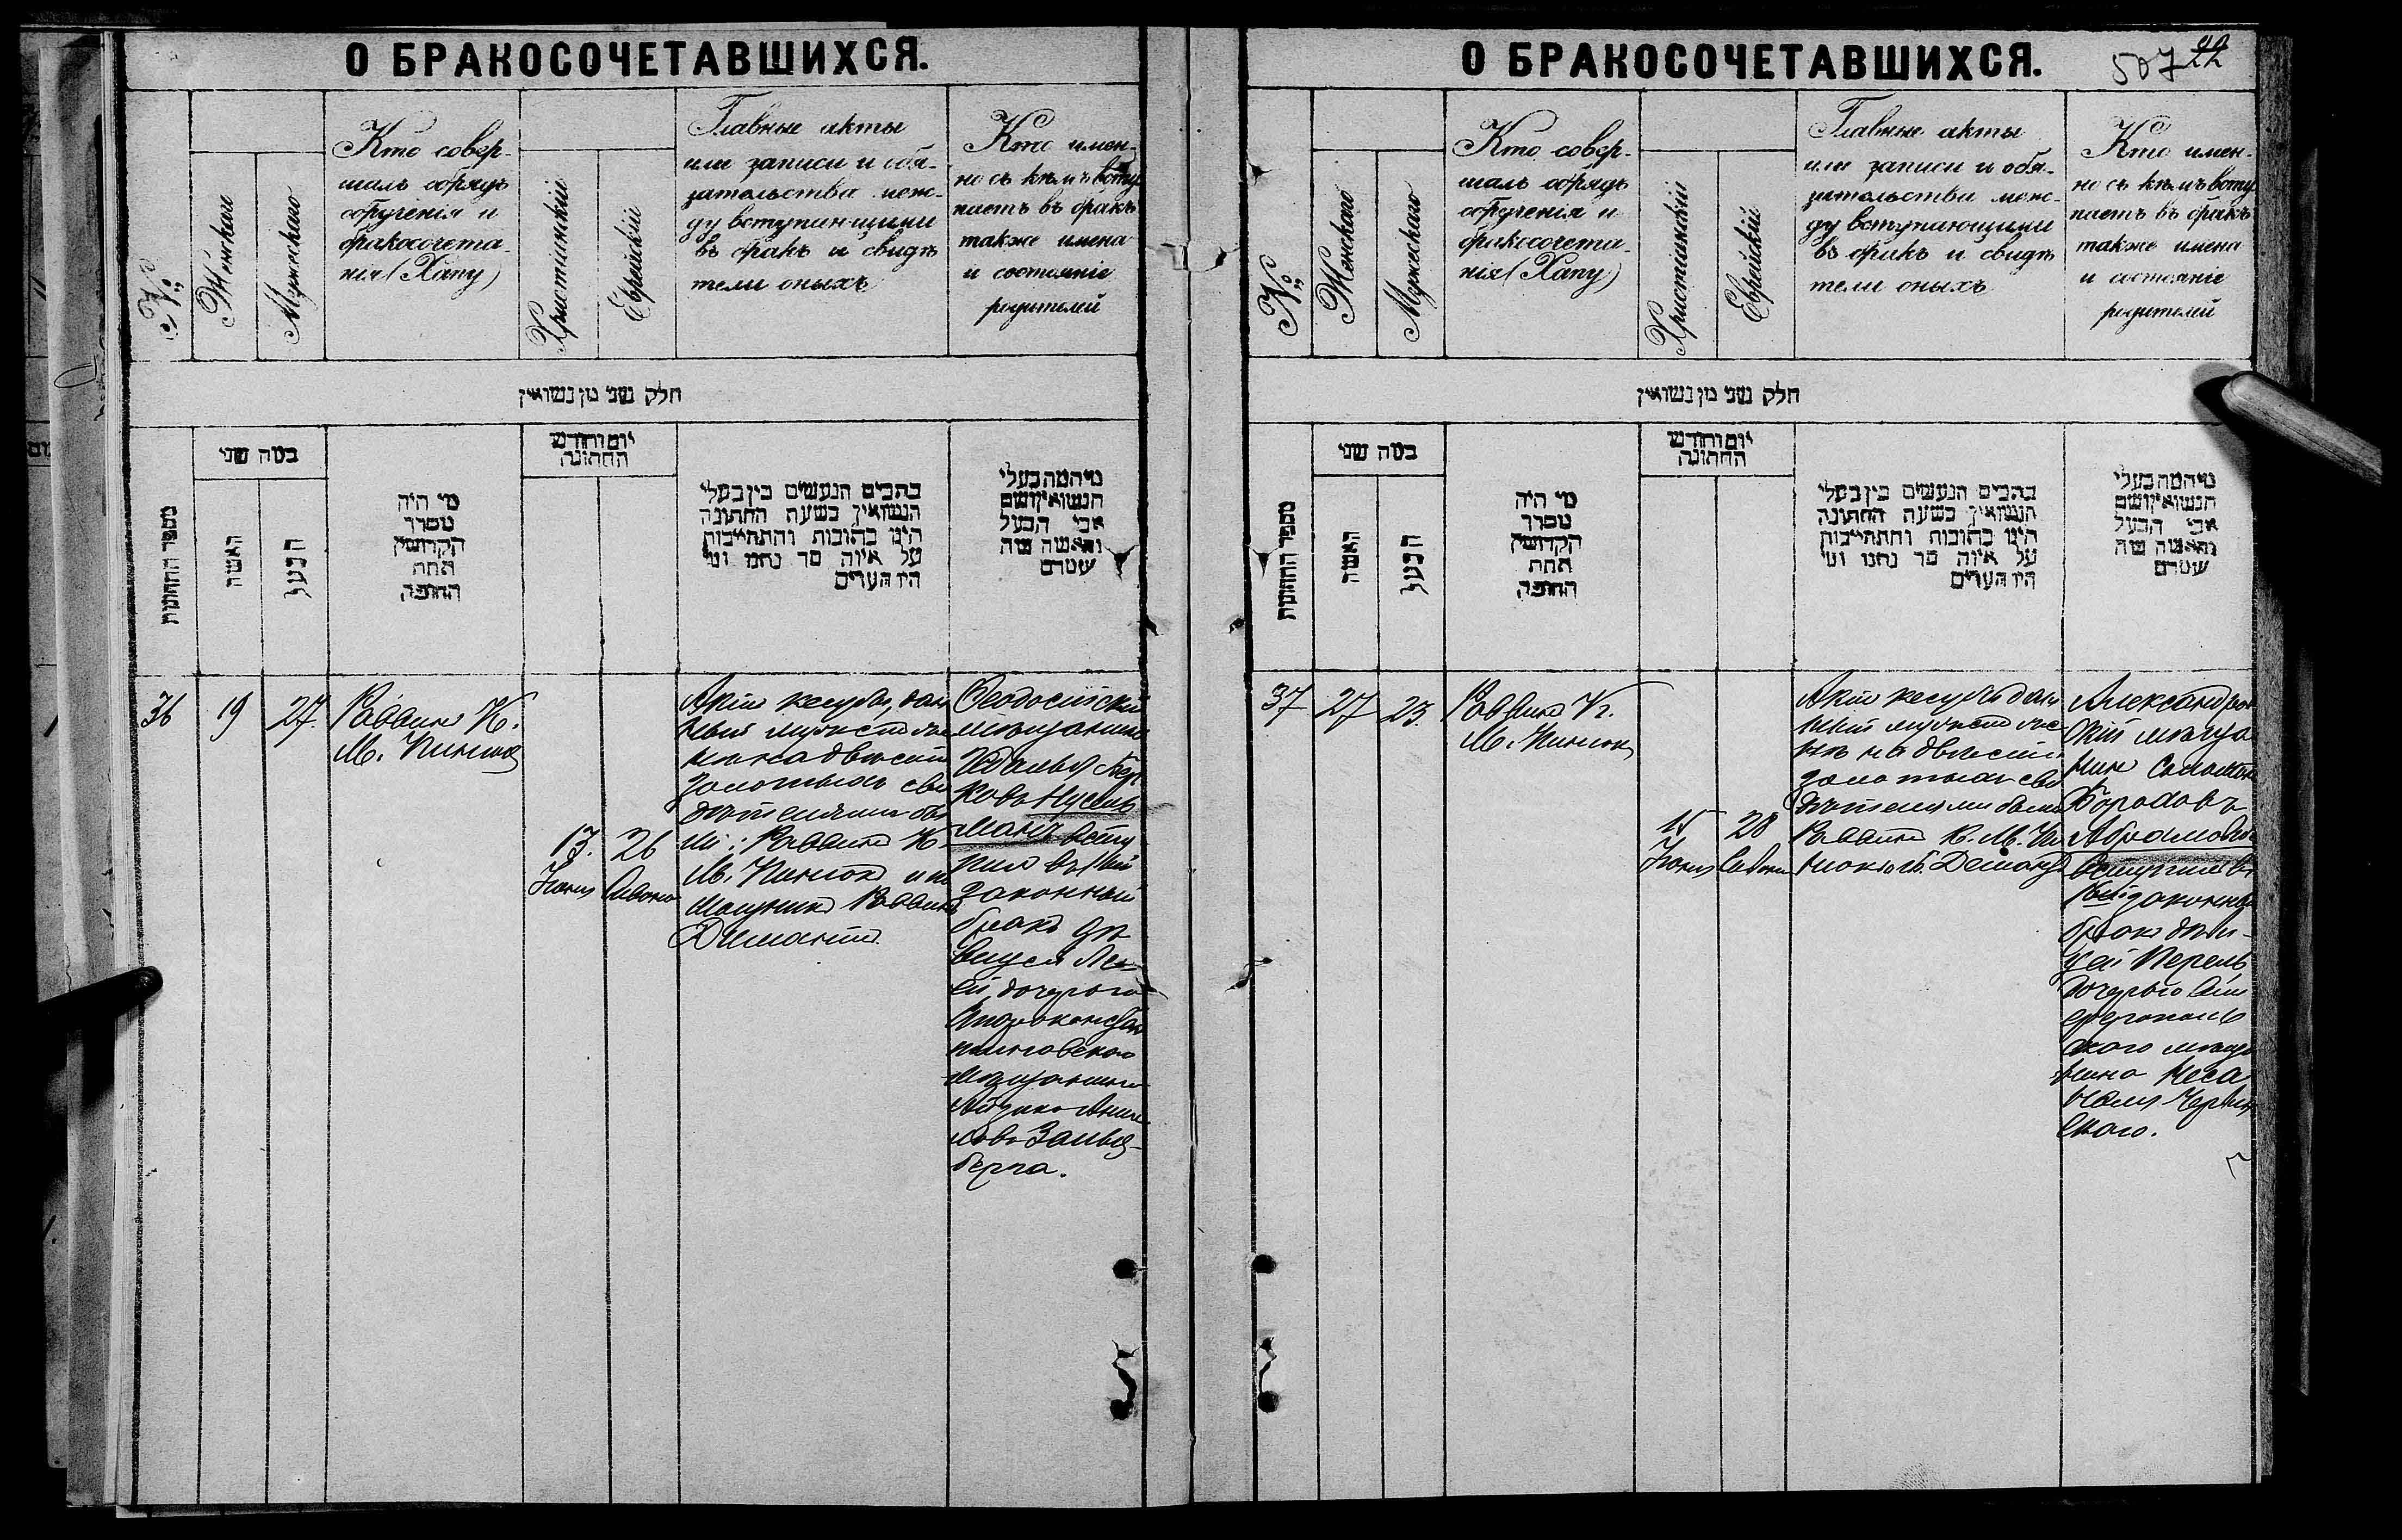 О БРАКОСОЧЕТАВШИХСЯ.
№
Женскаго
Мужескаго
Кто совер-
шалъ обрядъ
обрученія и
бракосочета-
нія (Хапу)
Христіанскій
Еврейскій
Главные акты
или записи и обя-
зательства меж-
ду вступающими
въ бракъ и свидѣ
тели оныхъ
Кто имен-
но съ кѣмъ всту
паетъ въ бракъ
также имена
и состояніе
родителей
חלק שני מן נשואין
מספר החתונות
במה שני
האשה
הבעל
מי היה
מסדר
הקדושין
תחת
החופה
יום וחודש
החתונה
כתבים הנעשים בין בעלי
הנשואין בשעת החתונה
היינו כתובות והתחייבות
על איזה סך נתנו ומי
היו העדים
מי המה בעלי
הנשואין ושם
אבי הבעל
והאשה ומה
שמם
36
19
27.
Раввинъ К.
М. Пинскъ
13.
Іюня
26
Сивона
Актъ кесубы, дан
ный мужемъ же
нѣ на двѣсти
золотыхъ сви
дѣтелями бы
ли: Раввинъ К.
М. Пинскъ и по
мощникъ Раввина
Димантъ.
Феодосійскій
мѣщанинъ
Гедалья Бер
ковъ Нусинъ
манъ всту
пилъ въ 1ый
законный
бракъ дѣ
вицею Ле-
ей дочерью
Староконстан
тиновскаго
мѣщанина
Айзика
Зальц-
берга.
О БРАКОСОЧЕТАВШИХСЯ.
507 22
№
Женскаго
Мужескаго
Кто совер-
шалъ обрядъ
обрученія и
бракосочета-
нія (Хапу)
Христіанскій
Еврейскій
Главные акты
или записи и обя-
зательства меж-
ду вступающими
въ бракъ и свидѣ
тели оныхъ
Кто имен-
но съ кѣмъ всту
паетъ въ бракъ
также имена
и состояніе
родителей
חלק שני מן נשואין
מספר החתונות
במה שני
האשה
הבעל
מי היה
מסדר
הקדושין
תחת
החופה
יום וחודש
החתונה
כתבים הנעשים בין בעלי
הנשואין בשעת החתונה
היינו כתובות והתחייבות
על איזה סך נתנו ומי
היו העדים
מי המה בעלי
הנשואין ושם
אבי הבעל
והאשה ומה
שמם
37
27
23.
Раввинъ К.
М. Пинскъ
15
Іюня
28
Сивона
Актъ кесубы дан
ный мужемъ же
нѣ на двѣсти
золотыхъ сви
дѣтелями были
Раввинъ К. М. Пи
нскъ и Димантъ
Александров
скій мѣща
нин Соломон
Бороховъ
Абрамович
вступилъ въ
1ый законный
бракъ дѣви-
цей Перель
дочерью Сим
феропольс
скаго мѣща
нина Неса
неля Черн
скаго.